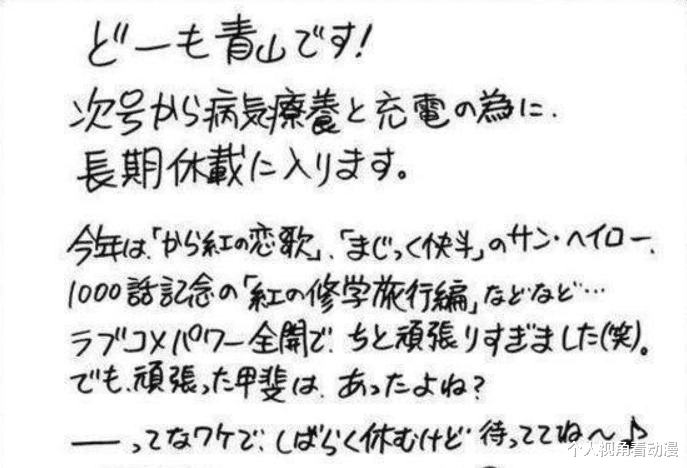 どーも青山です!
次号から病気療養と充電の為に、
長期休載に入ります。
今年は、「から紅の恋歌」、「まじっく快斗」のサン・ヘイロー、
1000話記念の「紅の修学旅行編」などなど…
ラブコメパワー全開で、ちと頑張りすぎました(笑)。
でも、頑張った甲斐は、あったよね?
──ってなワケで、しばらく休むけど 待っててね〜♪
个人视角看动漫